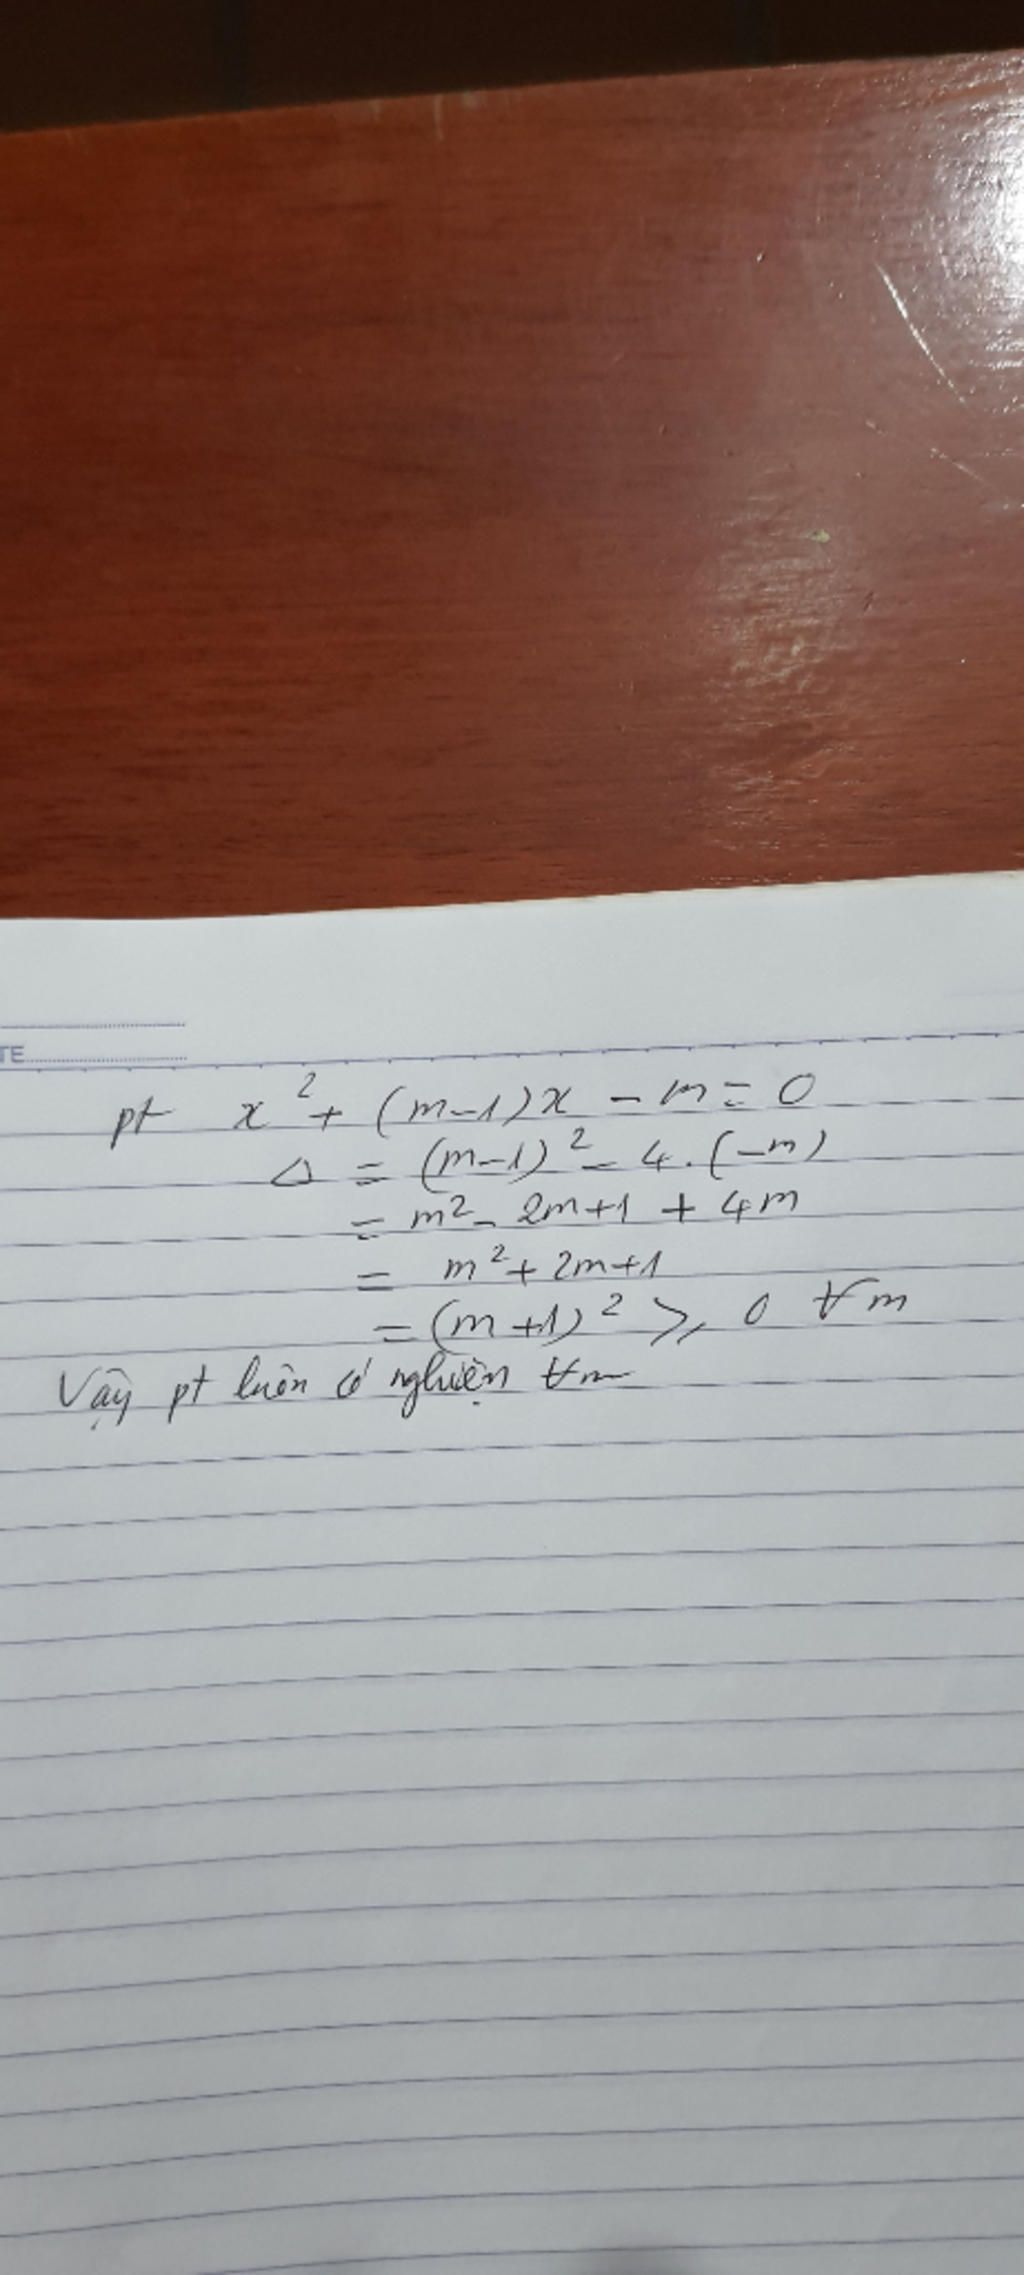 TE
pt x² + (m-1)x - m = 0
Δ = (m-1)² - 4.(-m)
= m² - 2m+1 + 4m
= m² + 2m+1
= (m+1)² ≥ 0 ∀m
Vậy pt luôn có nghiện ∀m